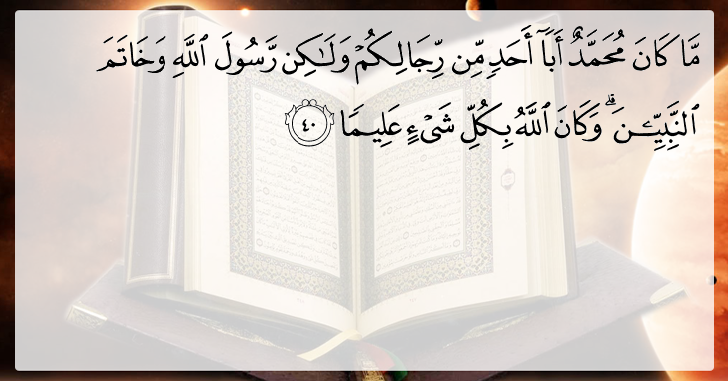 مَّا كَانَ مُحَمَّدٌ أَبَآ أَحَدٖ مِّن رِّجَالِكُمۡ وَلَٰكِن رَّسُولَ ٱللَّهِ وَخَاتَمَ
ٱلنَّبِيِّـۧنَۗ وَكَانَ ٱللَّهُ بِكُلِّ شَيۡءٍ عَلِيمٗا ٤٠